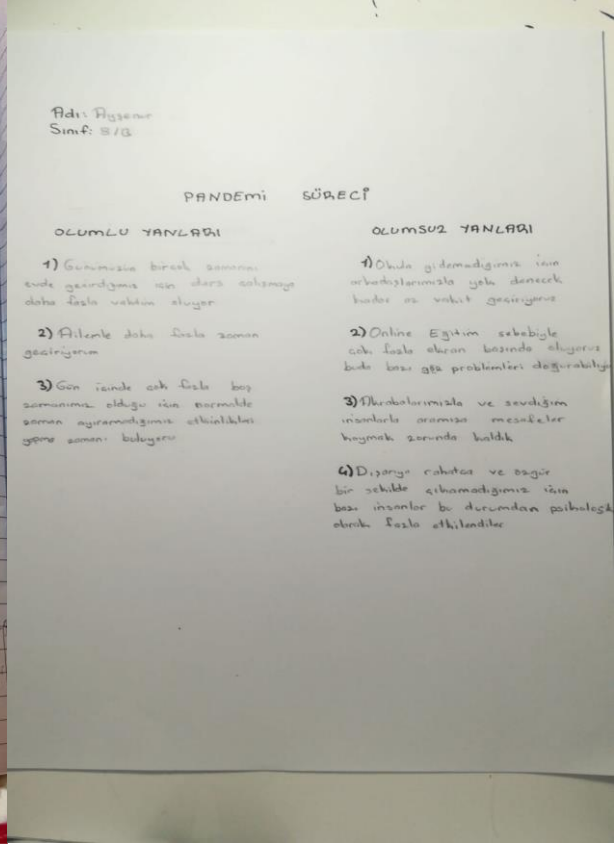 Adı: Ayşenur
Sınıf: 8/B
PANDEMİ SÜRECİ
OLUMLU YANLARI
1) Günümüzün birçok zamanını
evde geçirdiğimiz için ders çalışmaya
daha fazla vaktim oluyor
2) Ailemle daha fazla zaman
geçiriyorum
3) Gün içinde çok fazla boş
zamanımız olduğu için normalde
zaman ayıramadığımız etkinlikleri
yapma zamanı buluyoruz
OLUMSUZ YANLARI
1) Okula gidemediğimiz için
arkadaşlarımızla yok denecek
kadar az vakit geçiriyoruz
2) Online Eğitim sebebiyle
çok fazla ekran başında oluyoruz
buda bazı göz problemleri doğurabiliyor
3) Akrabalarımızla ve sevdiğim
insanlarla aramıza mesafeler
koymak zorunda kaldık
4) Dışarıya rahatça ve özgür
bir şekilde çıkamadığımız için
bazı insanlar bu durumdan psikolojik
olarak fazla etkilendiler